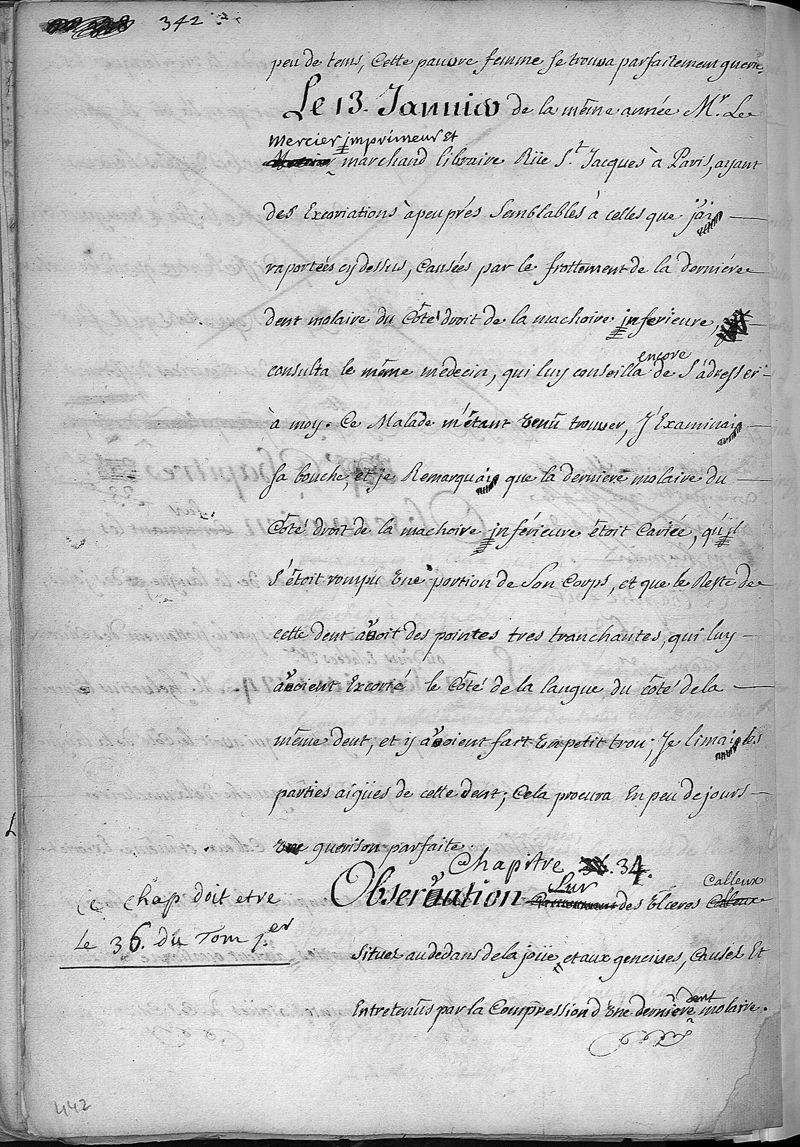 342
peu de tems, Cette pauvre femme se trouva parfaitement guerie.
Le 13. Janvier de la même année Mr. Le
mercier imprimeur et
marchand libraire Rüe St. Jacques à Paris, ayant
des Excoriations àpeuprés semblables à celles que j'ai
raportées cy dessus, Causées par le frottement de la derniére
dent molaire du Côté droit de la machoire inferieure,
consulta le même medecin, qui luy conseilla encore de s'adresser
à moy. Ce Malade m'étant venû trouver, J'Examinai
sa bouche, et je Remarquai que la derniere molaire du
Côté droit de la machoire inférieure étoit Cariée, qu'il
s'étoit rompû une portion de Son Corps, et que le Reste de
cette dent avoit des pointes tres tranchantes, qui luy
avoient Excorié le Côté de la langue du côté de la
même dent, et y avoient fait un petit trou; Je limai les
parties aigües de cette dent; Cela procura En peu de jours
une guerison parfaite.
Chapitre 34.
Observation sur des Ulceres Calleux
situés au dedans de la joüe, et aux gencives, Causés Et
Entretenûs par la Compression d'une derniére dent molaire.
Ce Chap. doit etre
Le 36. du Tom 1er
442